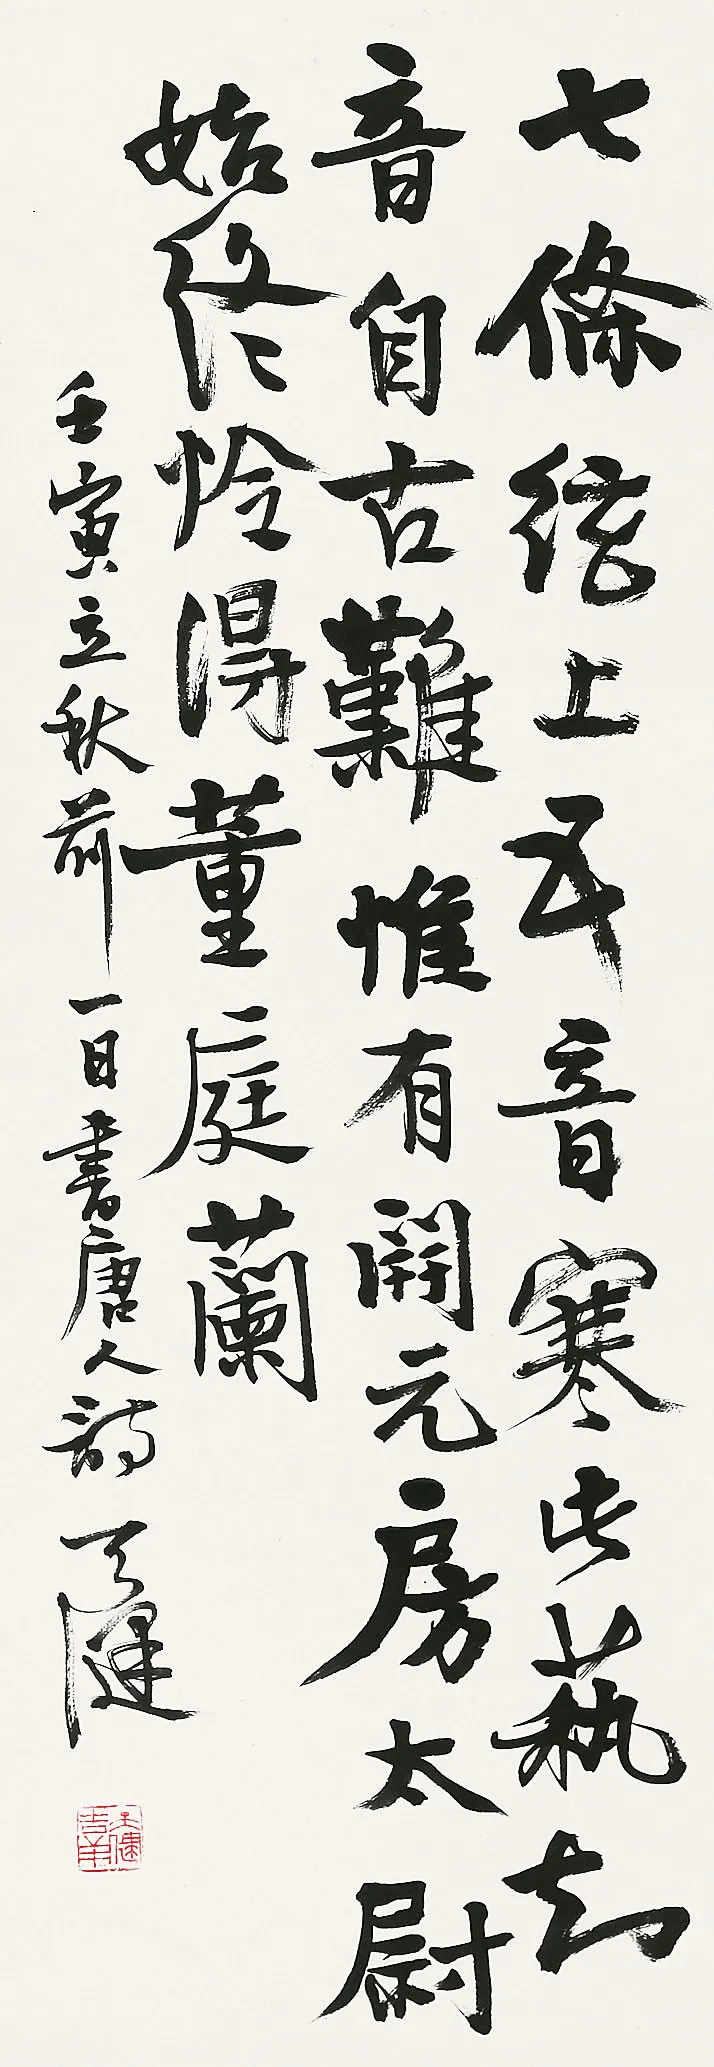 七條絃上五音寒此蓺知
音自古難惟有開元房太尉
始終怜得董庭蘭
壬寅立秋前一日書唐人詩 王健